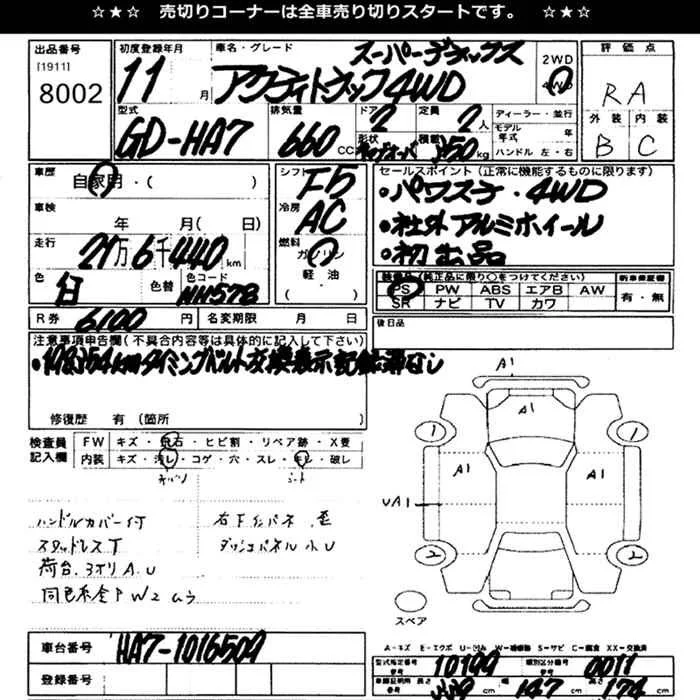 ☆★☆ 売切りコーナーは全車売り切りスタートです。 ☆★☆
出品番号
[1911]
8002
初度登録年月
11 月
車名・グレード
スーパーデラックス
アクティトラック4WD
2WD
4WD
評価点
RA
外装 内装
B C
型式
GD-HA7
排気量
660 CC
ドア
2
形状
定員
2 人
積載
350 kg
ディーラー・並行
モデル年式 年
ハンドル 左・右
車歴
自家用・( )
シフト
F5
車検
年 月( 日)
冷房
AC
走行
21万6千440 km
燃料
ガソリン
軽油
( )
色
白
色替
色コード
NH578
R券 6100 円
名変期限 月 日
セールスポイント(正常に機能するものに限ります)
・パワステ・4WD
・社外アルミホイール
・初出品
装備品(純正品に限り○をつけてください)
PS PW ABS エアB AW
SR ナビ TV カワ
新車保証書
有・無
後日品
注意事項申告欄(不具合内容等は具体的に記入して下さい)
修復歴 有(箇所 )
検査員記入欄
FW キズ・飛石・ヒビ割・リペア跡・X要
内装 キズ・汚レ・コゲ・穴・スレ・キレ・破レ
シート
ハンドルカバー付
スタッドレスT
荷台.3オリA.U
同色系全PW2ムラ
右下インパネ.歪
ダッシュパネル小U
A1
A1
1 1
A1 A1
UA1
2 2
スペア
A-キズ E-エクボ U-凹み W-補修跡 S-サビ C-腐食 XX-交換済
車台番号
HA7-1016509
登録番号
型式指定番号 10199
類別区分番号 0011
車検証明用 長さ cm 幅 147 cm 高さ 174 cm